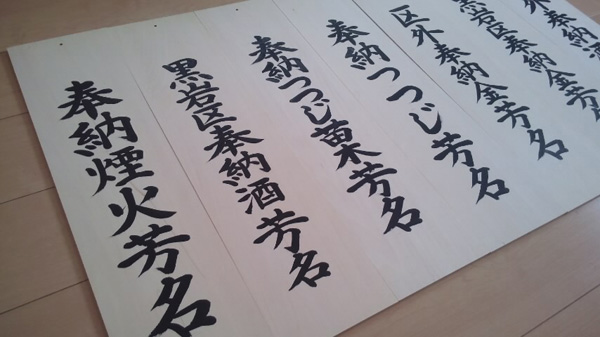 外奉納酒
黒岩区奉納金芳名
区外奉納金芳名
奉納つつじ芳名
奉納つつじ苗木芳名
黒岩区奉納酒芳名
奉納煙火芳名